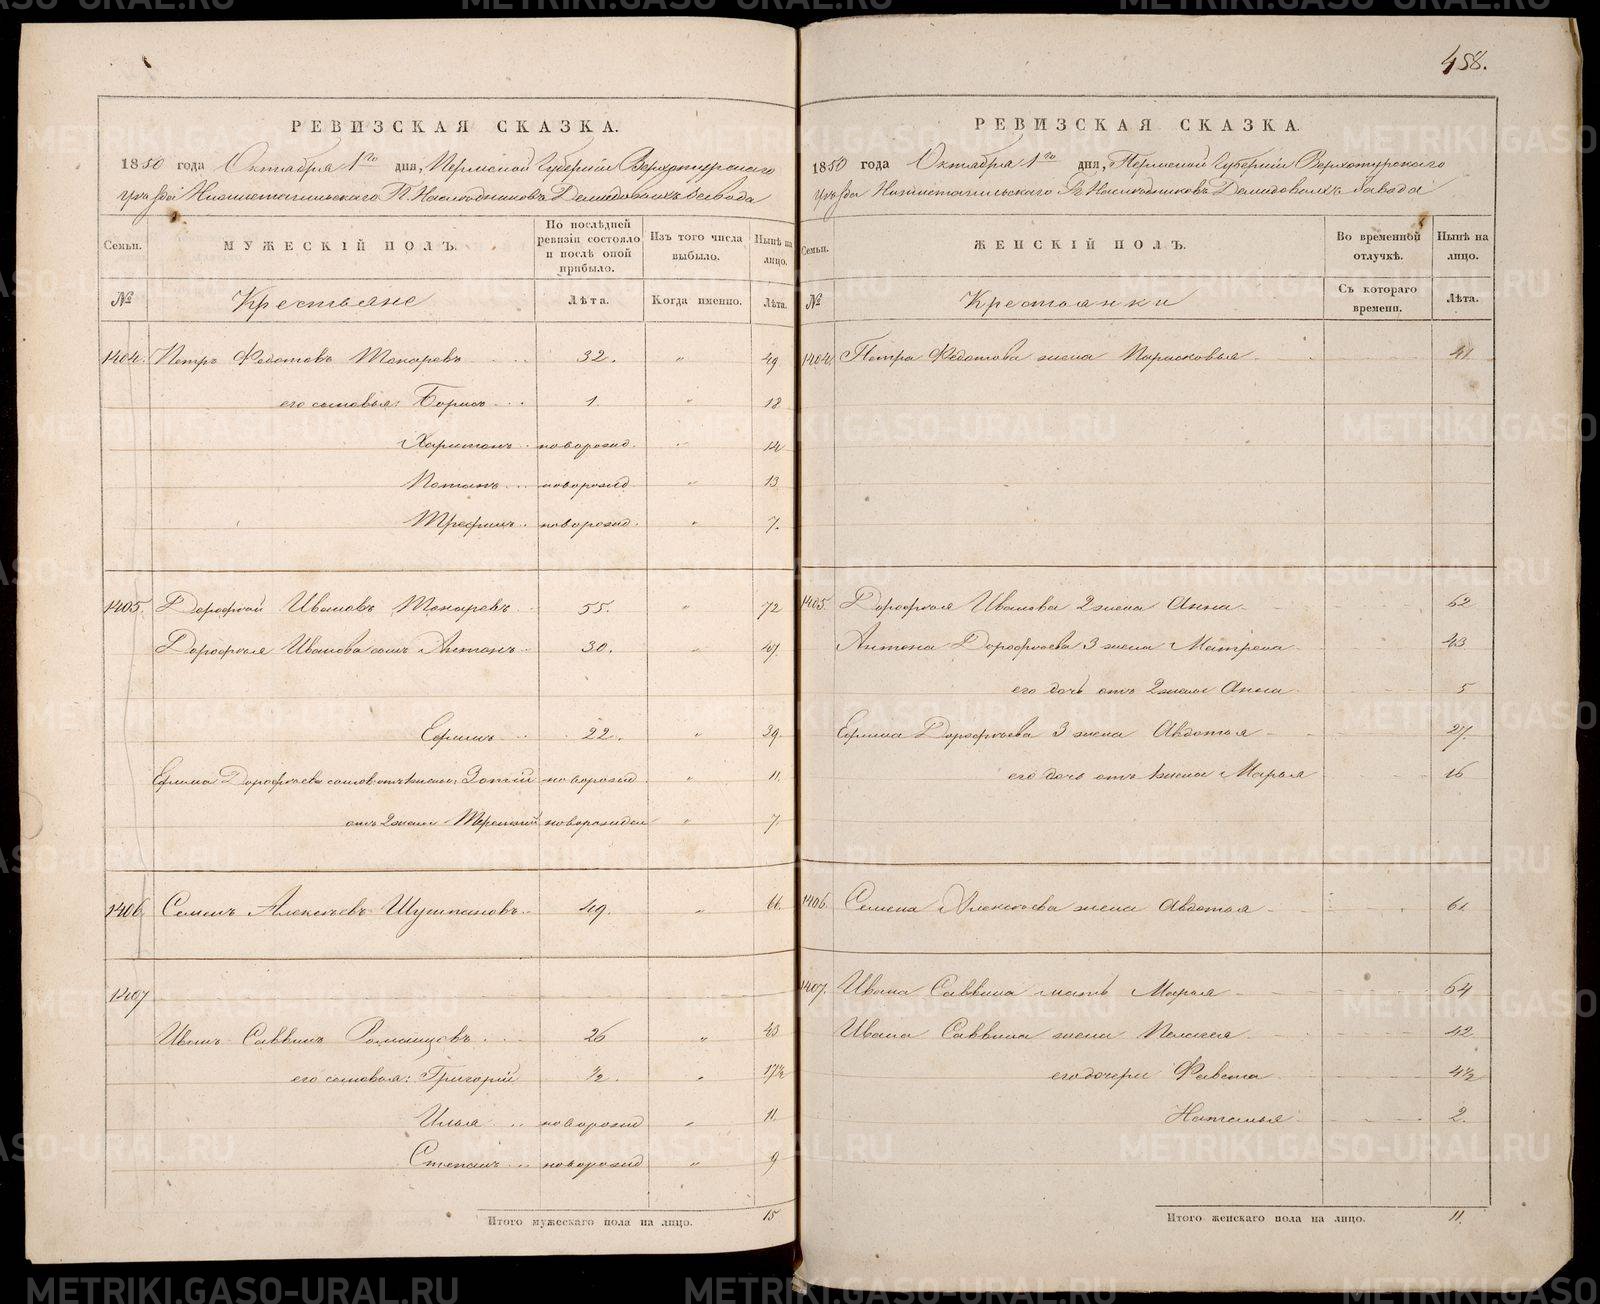 458.
РЕВИЗСКАЯ СКАЗКА.
1850 года Октября 1го дня, Пермской Губернiи Верхотурскаго
Уѣзда Нижнетагильскаго Г. Наслѣдниковъ Демидовыхъ Завода
Семьи.
МУЖЕСКIЙ ПОЛЪ.
По послѣдней ревизiи состояло и послѣ оной прибыло.
Изъ того числа выбыло.
Нынѣ на лицо.
№ Крестьяне Лѣта. Когда именно. Лѣта.
1404. Петръ Федотовъ Токаревъ 32. " 49
его сыновья: Борисъ 1. " 18
Харитонъ новорожд. " 14
Потапъ новорожд. " 13
Трефилъ новорожд. " 7.
1405. Дорофѣй Ивановъ Токаревъ 55. " 72
Дорофѣя Иванова сынъ Антонъ 30. " 47.
Ефимъ 22. " 39.
Ефима Дорофѣева сынов. отъ 1 жены: Зотiй новорожд " 11.
отъ 2 жены Терентiй новорожден " 7.
1406. Семенъ Алексѣевъ Шушпановъ 49. " 66.
1407
Иванъ Саввинъ Романцовъ 26 " 43
его сыновья: Григорiй 1/2. " 17 1/2
Илья новорожд " 11.
Степанъ новорожд " 9
Итого мужескаго пола на лицо. 15
РЕВИЗСКАЯ СКАЗКА.
1850 года Октября 1го дня, Пермской Губернiи Верхотурскаго
Уѣзда Нижнетагильскаго Г. Наслѣдниковъ Демидовыхъ Завода
Семьи.
ЖЕНСКIЙ ПОЛЪ.
Во временной отлучкѣ.
Нынѣ на лицо.
№ Крестьянки Съ котораго времени. Лѣта.
1404. Петра Федотова жена Парасковья 41
1405. Дорофѣя Иванова 2 жена Анна 62
Антона Дорофѣева 3 жена Матрена 43
его дочь отъ 2 жены Анна 5
Ефима Дорофѣева 3 жена Авдотья 27.
его дочь отъ 1 жены Марья 16
1406. Семена Алексѣева жена Авдотья 61
1407. Ивана Саввина мать Марья 64
Ивана Саввина жена Пелагея 42
его дочери Фавста 4 1/2
Наталья 2.
Итого женскаго пола на лицо. 11.
METRIKI.GASO-URAL.RU